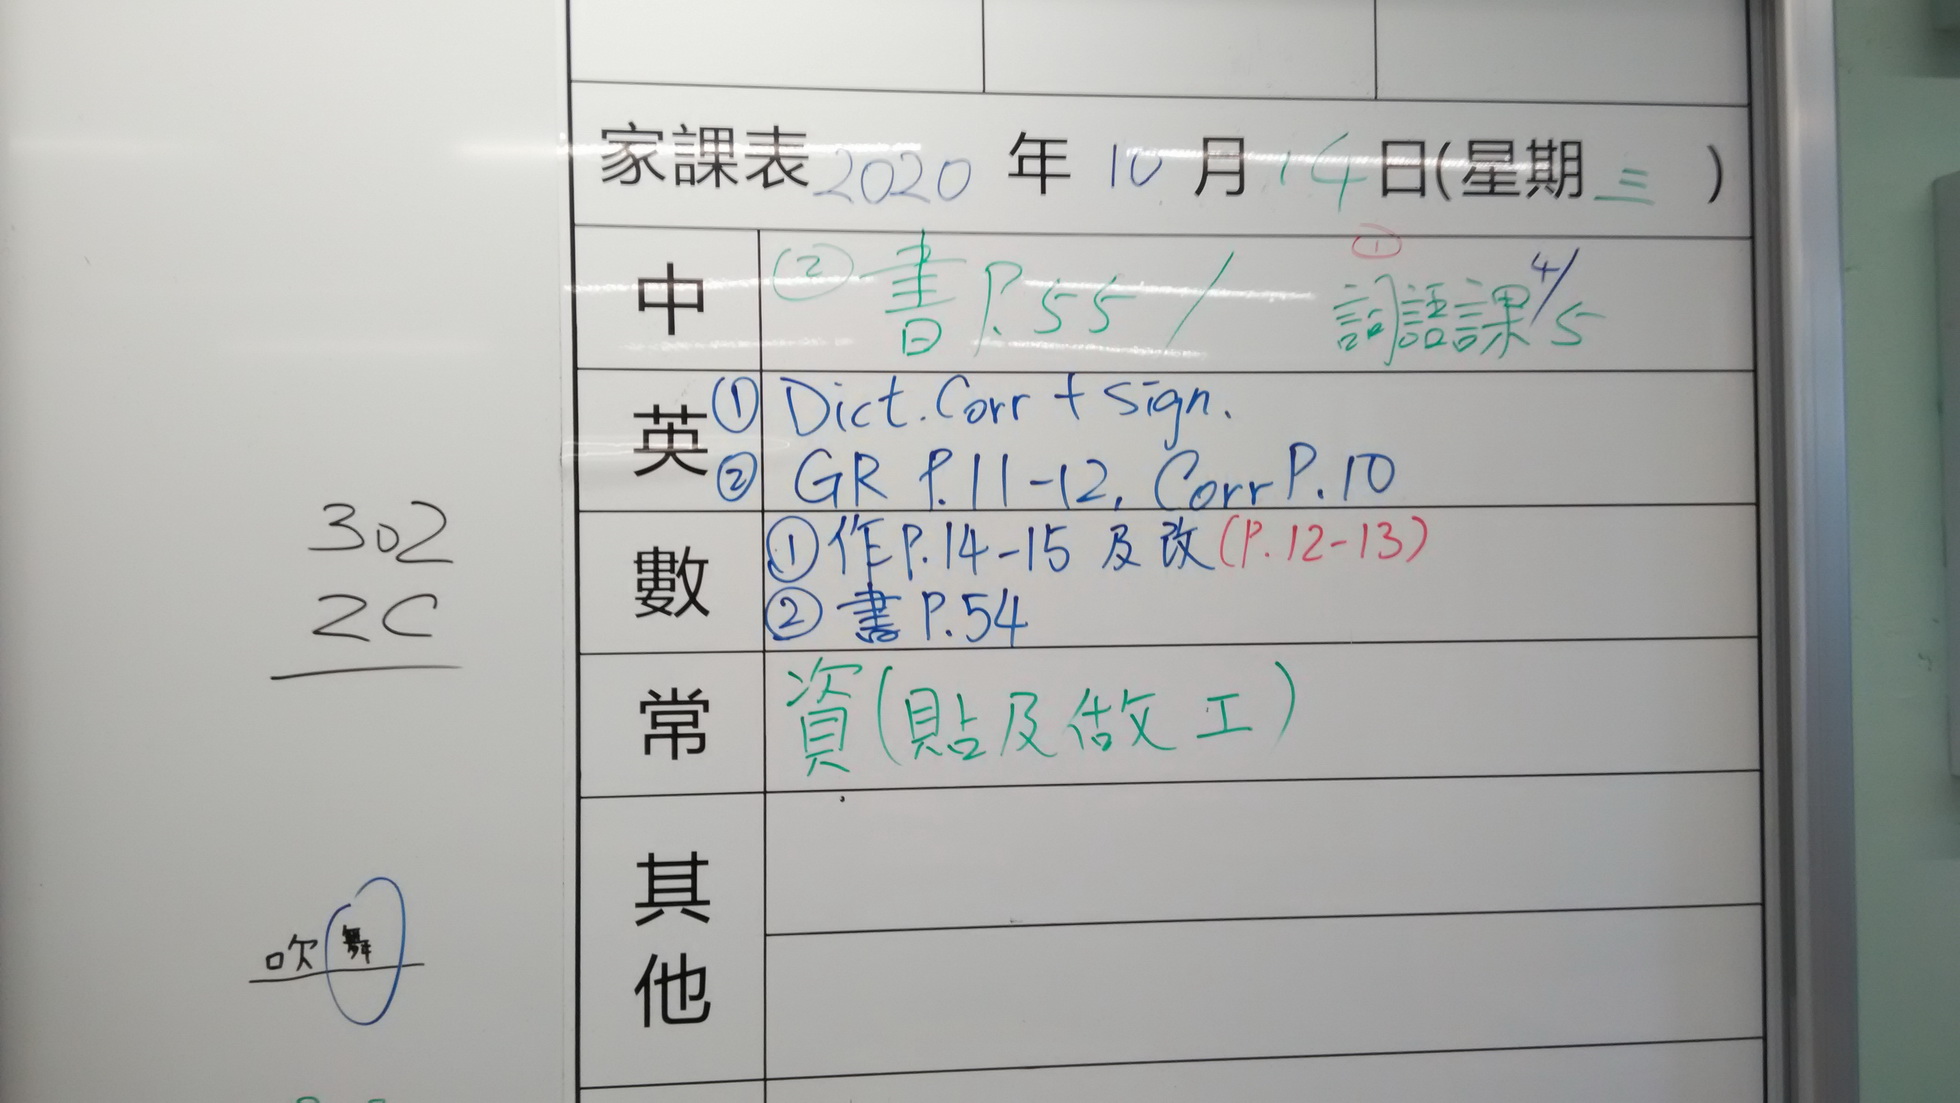 家課表 2020 年 10 月 14 日(星期三)
中 ② 書 P.55 / ① 詞語課 4/5
英 ① Dict. Corr + Sign.
② GR P.11-12, Corr P.10
數 ① 作P.14-15 及改(P.12-13)
② 書 P.54
常 資(貼及做工)
其他
302
2C
吹舞